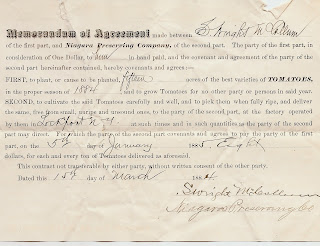 Memorandum of Agreement made between S. Wright McCollum
of the first part, and Niagara Preserving Company, of the second part. The party of the first part, in
consideration of One Dollar, to him in hand paid, and the covenant and agreement of the party of the
second part hereinafter contained, hereby covenants and agrees:—
FIRST, to plant, or cause to be planted, fifteen acres of the best varieties of TOMATOES,
in the proper season of 1884 and to grow Tomatoes for no other party or persons in said year.
SECOND, to cultivate the said Tomatoes carefully and well, and to pick them when fully ripe, and deliver
the same, free from small, unripe and unsound ones, to the party of the second part, at the factory operated
by them Lockport N.Y. at such times and in such quantities as the party of the second
part may direct. For which the party of the second part covenants and agrees to pay the party of the first
part, on the 5th day of January 1885, Eight
dollars, for each and every ton of Tomatoes delivered as aforesaid.
This contract not transferable by either party, without written consent of the other party.
Dated this 15th day of March 1884
S Wright McCollum
Niagara Preserving Co